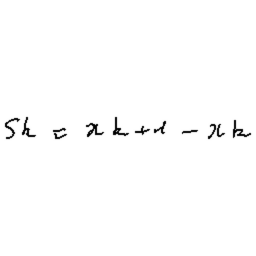 Sk = xk+1 - xk